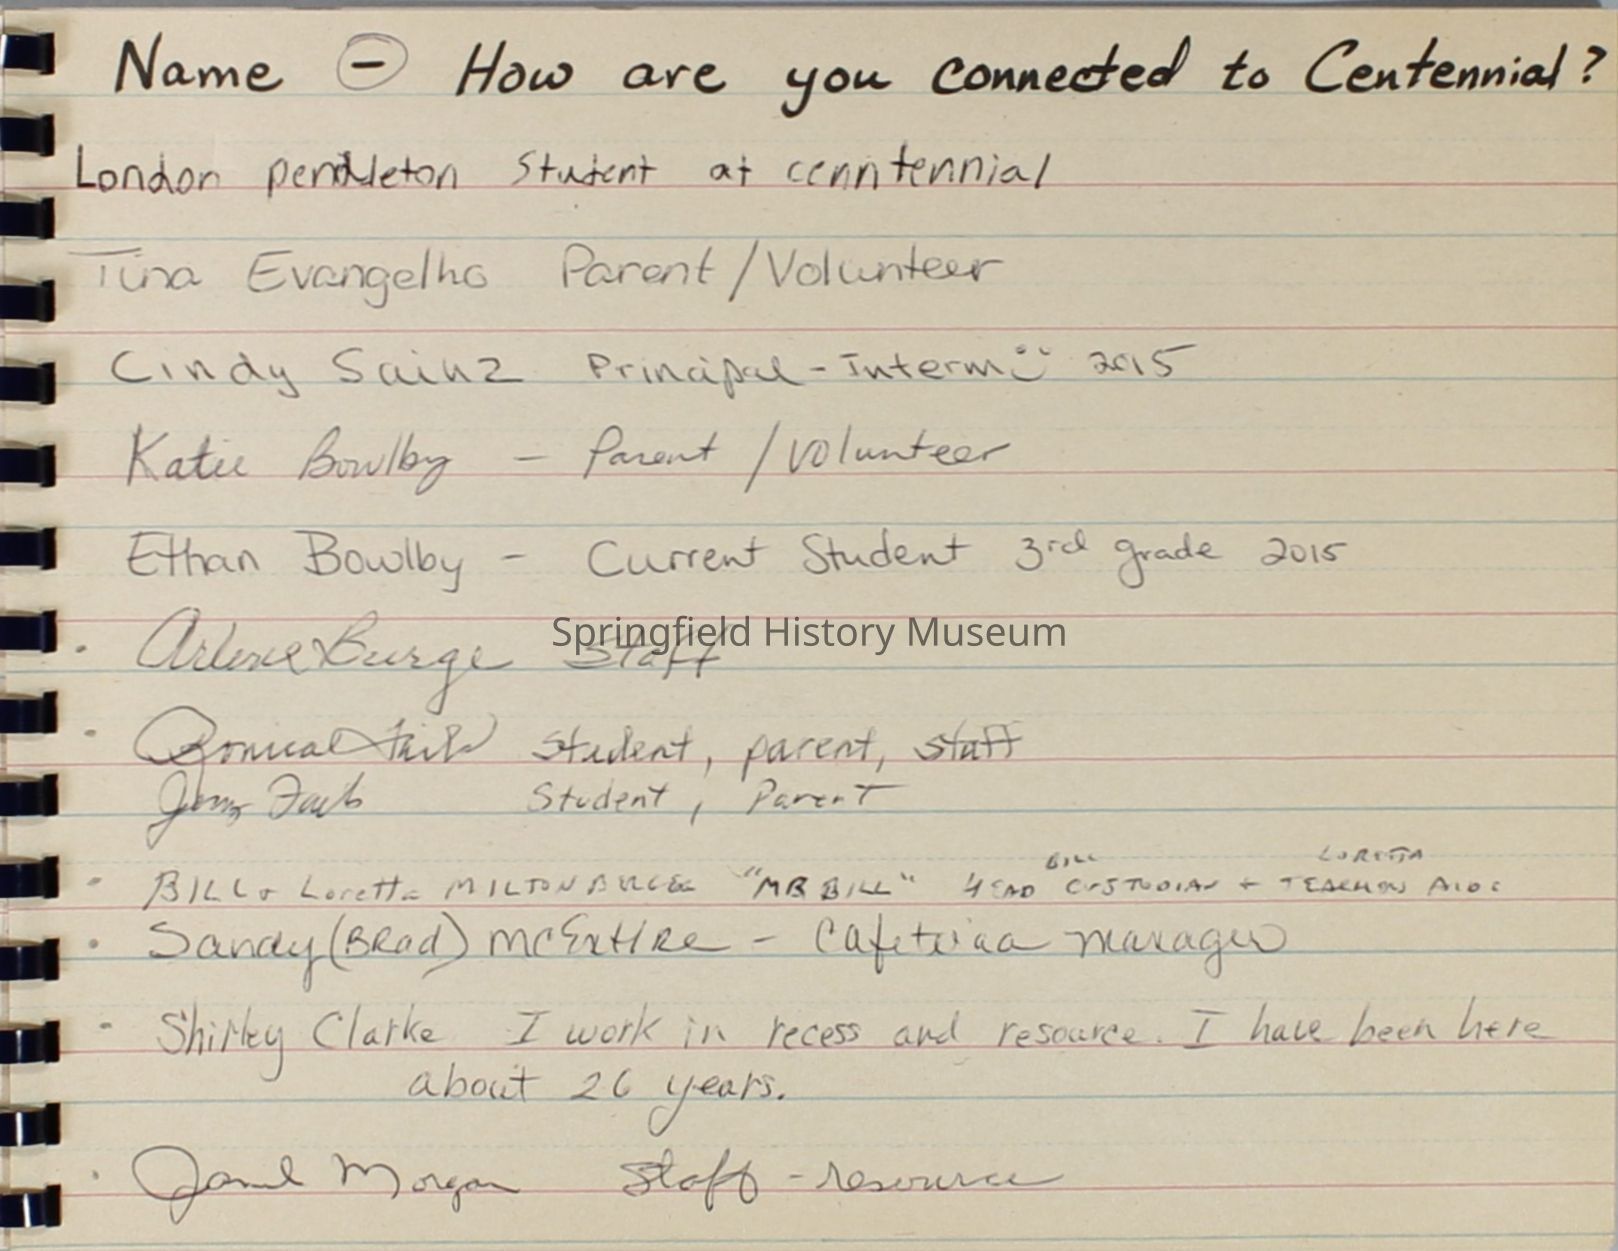 Name - How are you connected to Centennial?
London pendleton Student at cenntennial
Tina Evangelho Parent/Volunteer
Cindy Sainz Principal-Interm 2015
Katie Bowlby - Parent /Volunteer
Ethan Bowlby - Current Student 3rd grade 2015
Springfield History Museum
Arlene Burge Staff
Student, parent, staff
Student, Parent
BILL LORETTA
BILL + Loretta "MR BILL" HEAD CUSTODIAN + TEACHERS AIDE
Sandy (BRad) McEntire - Cafeteria manager
Shirley Clarke I work in recess and resource. I have been here
about 26 years.
Morgan Staff - resource